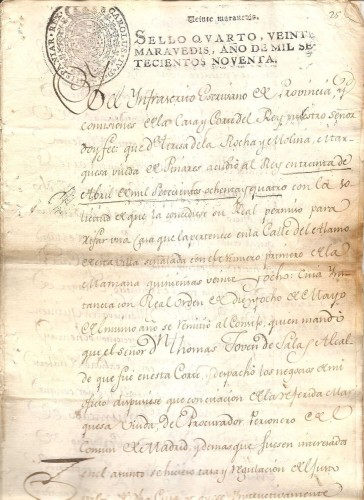 Veinte maravedis.
SELLO QVARTO, VEINTE
MARAVEDIS, AÑO DE MIL SE-
TECIENTOS NOVENTA.
CAROLUS IV
El Ynfraescrito Escrivano de Provincia, y
comisiones de la Casa y Corte del Rey nuestro Señor
Doy fee: que Dª Teresa de la Rocha y Molina, Mar-
quesa viuda de Pinares acudio al Rey en treinta de
Abril de mil setecientos ochenta y quatro con la so-
licitud de que la concediese su Real permiso para
rifar una Casa que la pertenece en la Calle del Alamo
de esta villa señalada con el numero primero de la
Manzana quinientas veinte y ocho: Cuia Yns-
tancia con Real Orden de diez y ocho de Mayo
del mismo año se remitió al Consejo, quien mandó
que el señor Dn Thomas Joven de Salas, Alcal-
de que fue en esta Corte, y despachó los negocios de mi
oficio dispusiese que con citacion de la referida Mar-
quesa Viuda, del Procurador Personero del
Comun de Madrid, y demas que fuesen interesados
en el asunto se hiciese tasa y regulacion del justo